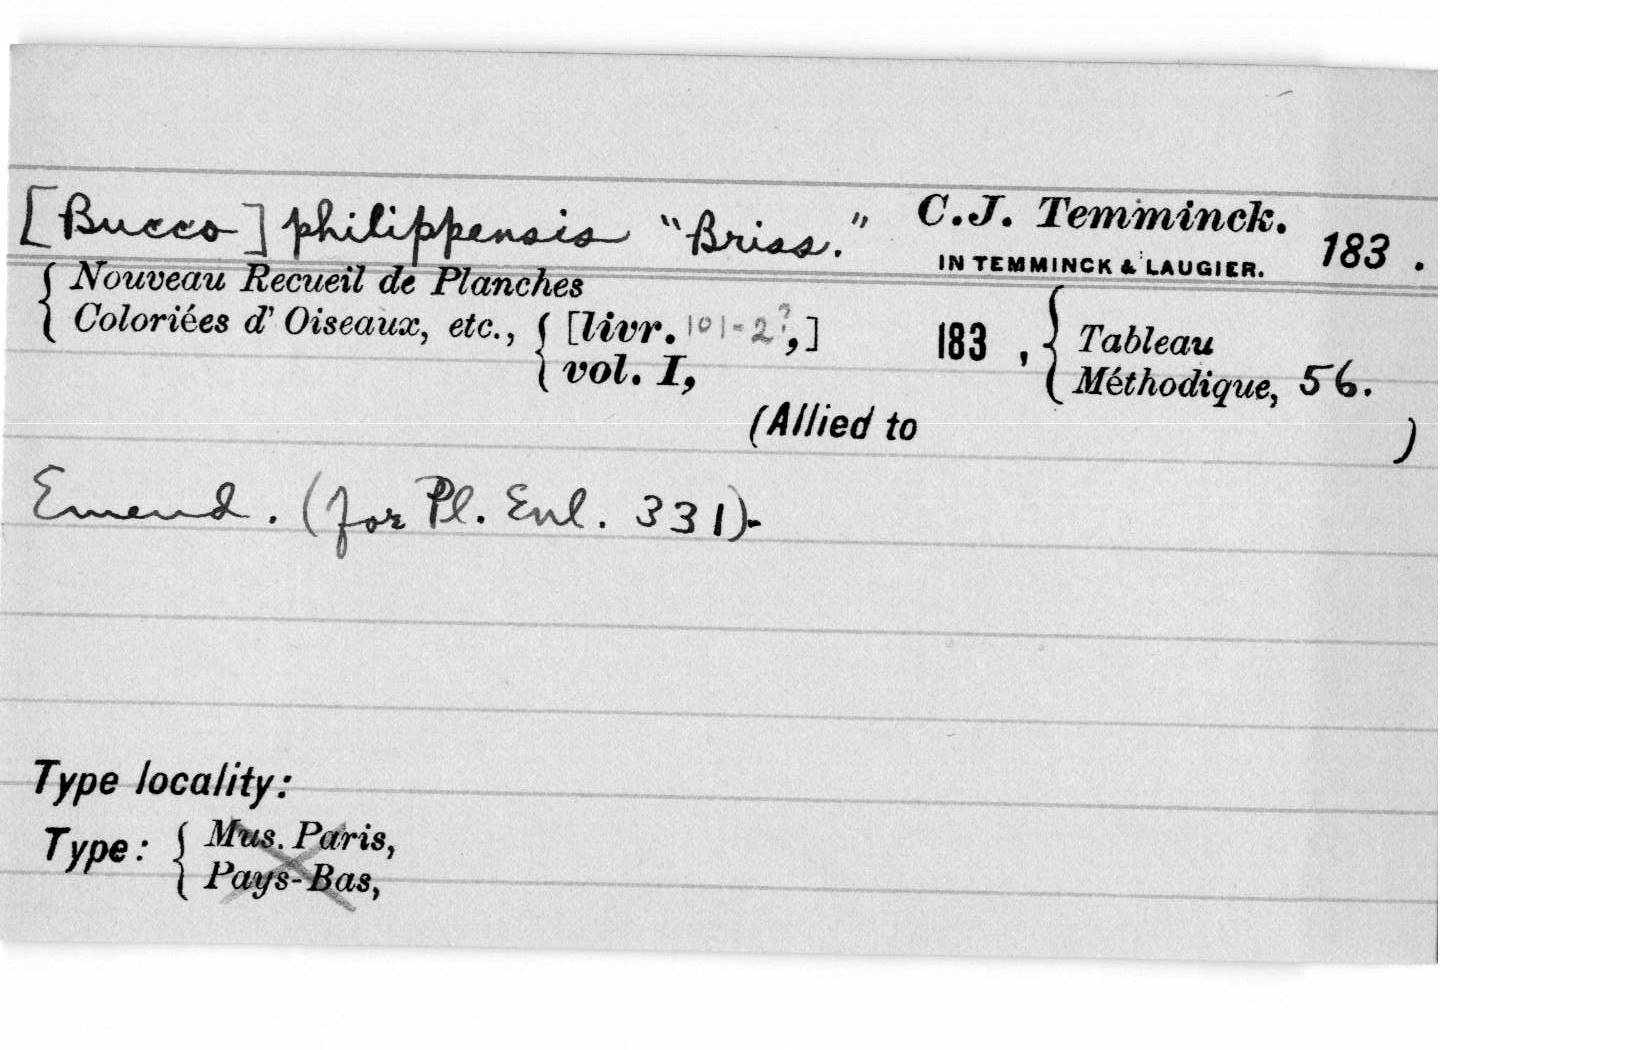 [Bucco] philippensis "Briss." C.J. Temminck.
IN TEMMINCK & LAUGIER. 183.
Nouveau Recueil de Planches
Coloriées d' Oiseaux, etc., [livr. 101-2?,] 183, Tableau
vol. I, Méthodique, 56.
(Allied to )
Emend. (for Pl. Enl. 331).
Type locality:
Type: Mus. Paris,
Pays-Bas,